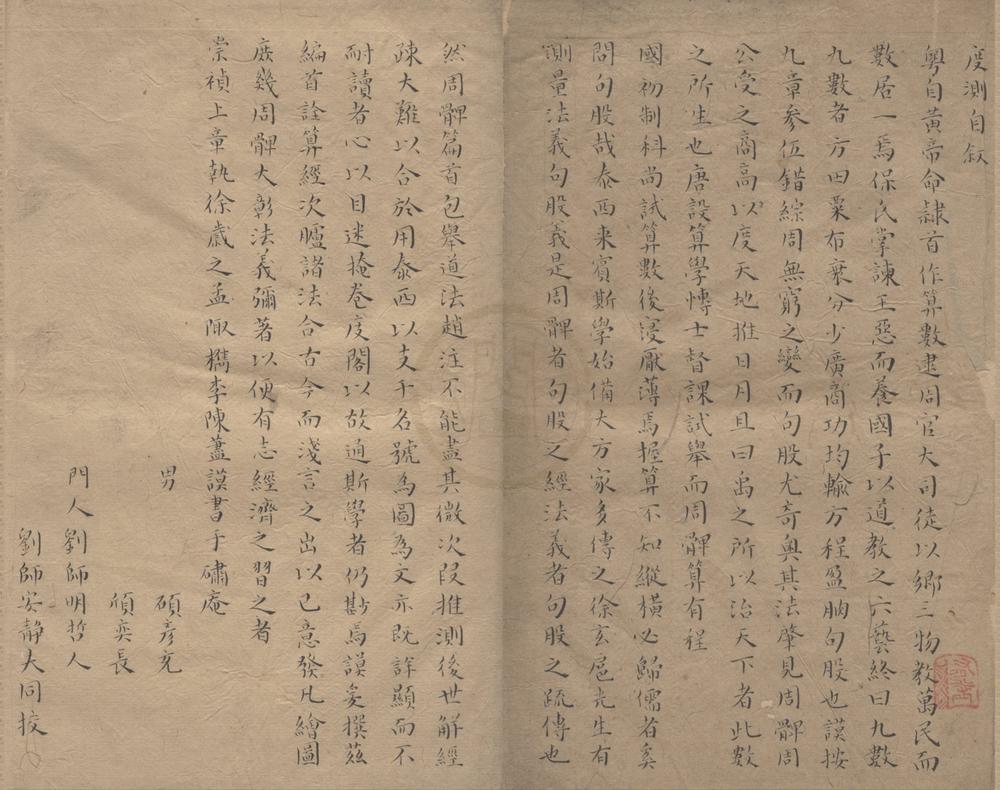 度測自叙
粵自黃帝命隸首作算數逮周官大司徒以鄉三物教萬民而
數居一焉保氏掌諫王惡而養國子以道教之六藝終曰九數
九數者方田粟布衰分少廣商功均輸方程盈朒句股也謨按
九章參伍錯綜周無窮之變而句股尤奇奧其法肇見周髀周
公受之商高以度天地推日月且曰禹之所以治天下者此數
之所生也唐設算學愽士督課試舉而周髀算有程
國初制科尚試算數後寖厭薄焉握算不知縱橫必歸儒者奚
問句股哉泰西来賓斯學始備大方家多傳之徐玄扈先生有
測量法義句股義是周髀者句股之經法義者句股之疏傳也
然周髀篇首包舉道法趙注不能盡其微次段推測後世解經
疎大難以合於用泰西以支干名號為圖為文亦既詳顯而不
耐讀者心以目迷掩卷庋閣以故通斯學者仍尠焉謨爰撰茲
編首詮算經次臚諸法合古今而淺言之出以己意發凡繪圖
庶幾周髀大彰法義彌著以便有志經濟之習之者
崇禎上章執徐歲之孟陬檇李陳藎謨書于礴庵
男 碩彥充
頎奕長
門人劉師明哲人
劉師安靜大同挍